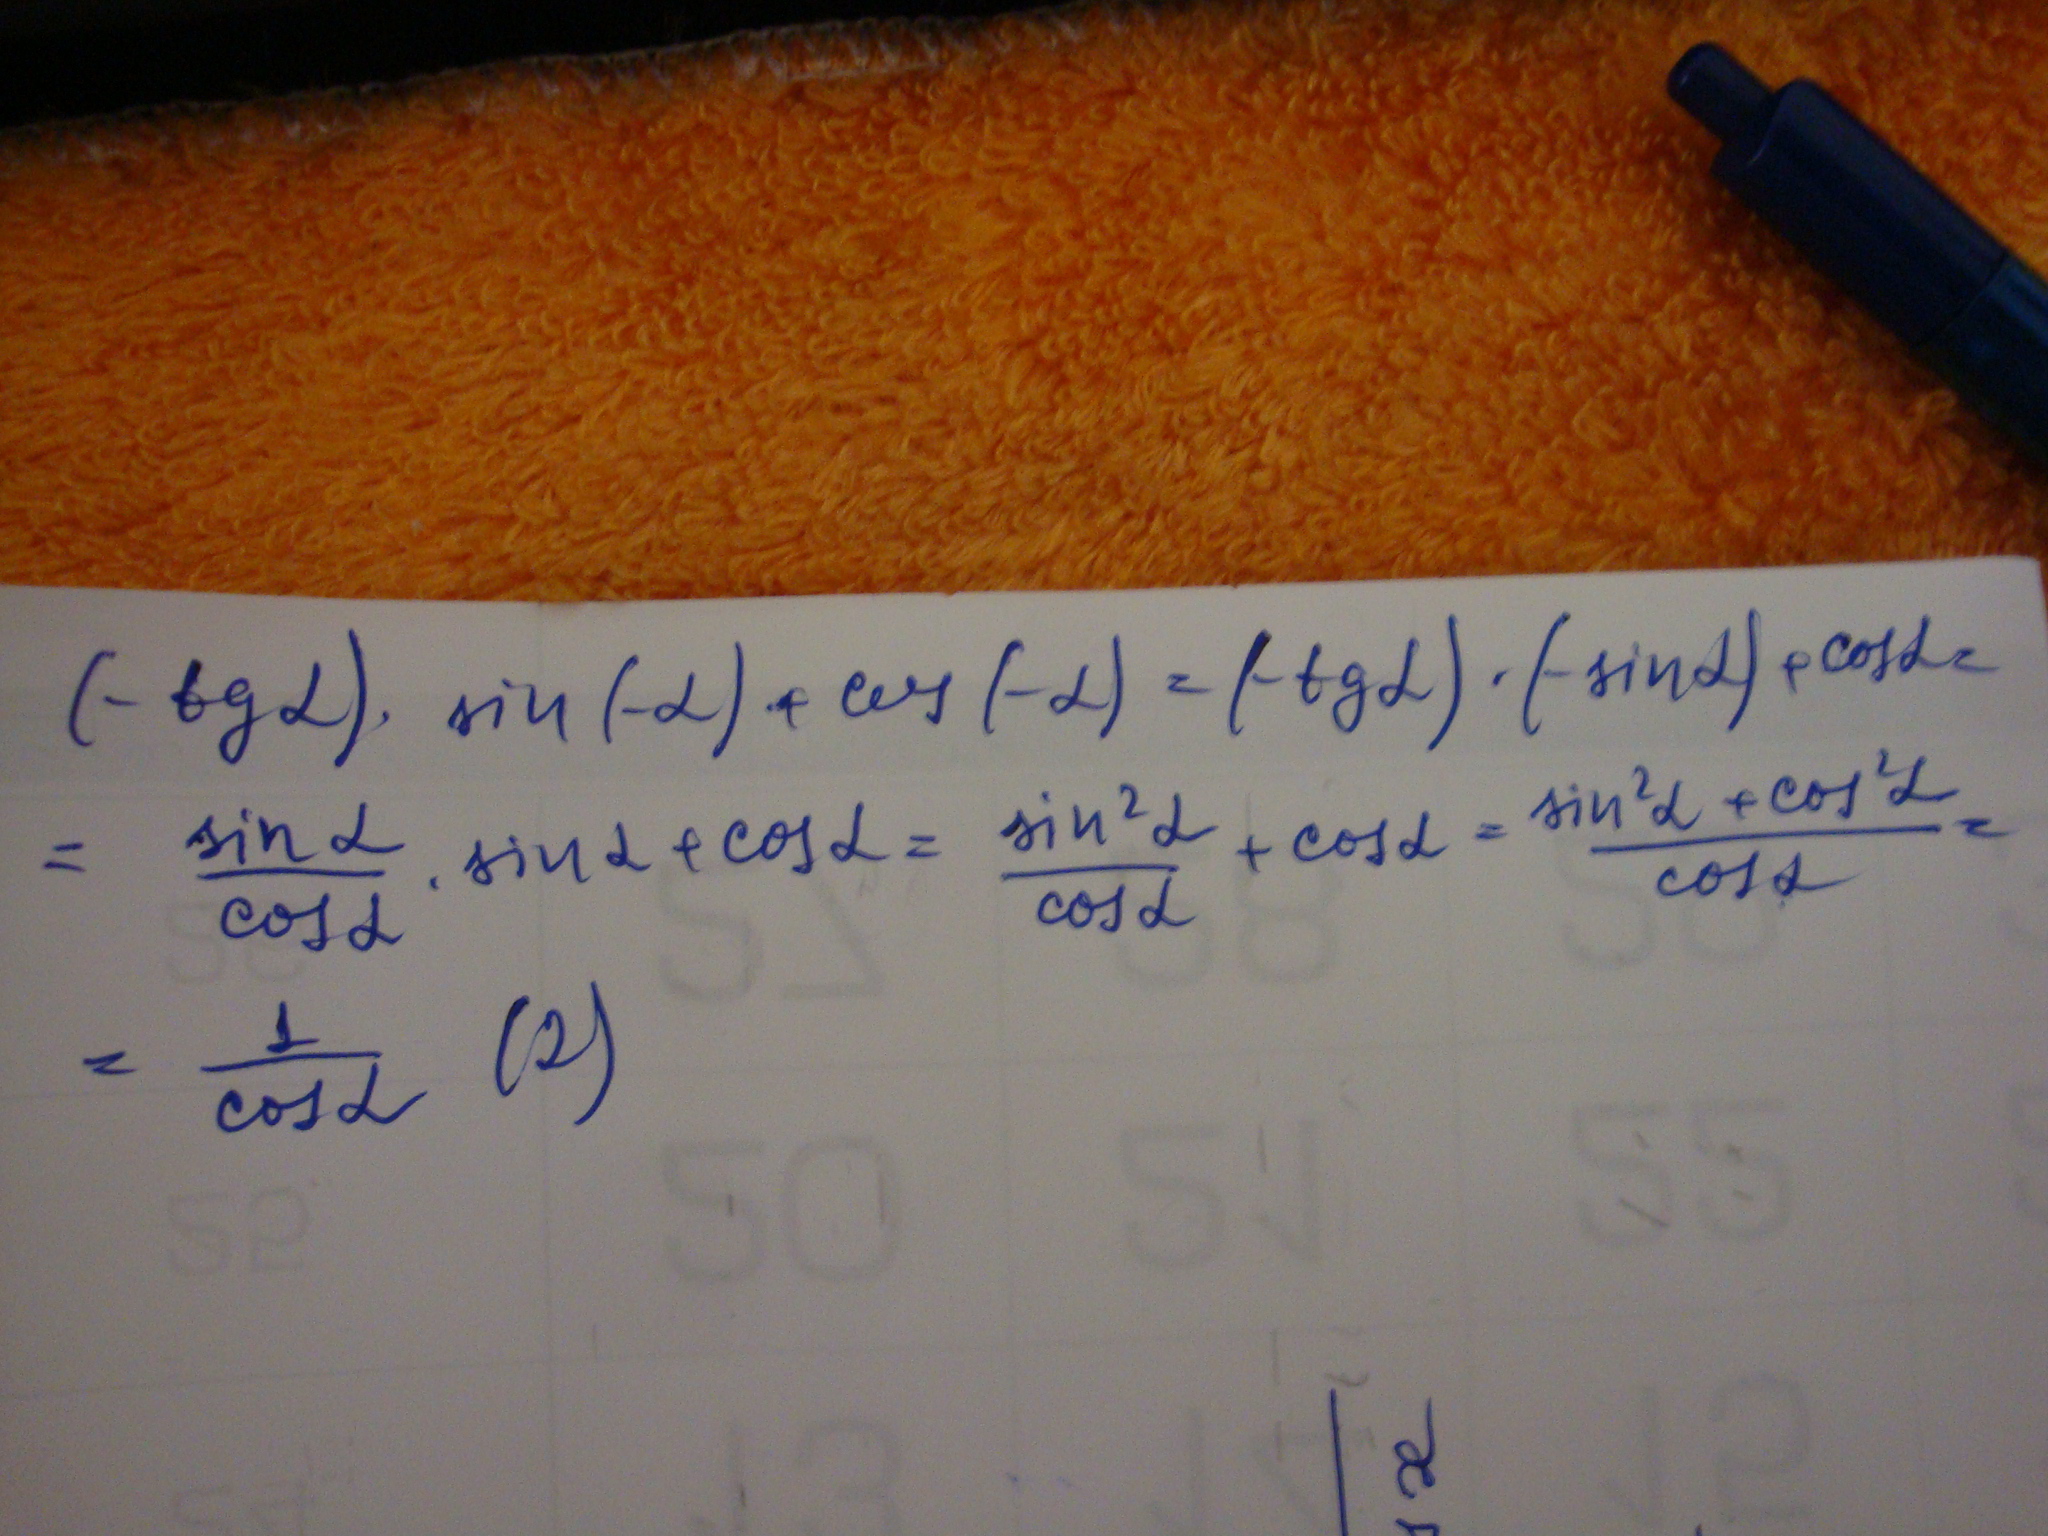 (-tgα)· sin(-α)+cos(-α)=(-tgα)·(-sinα)+cosα=
= sinα/cosα · sinα+cosα= sin²α/cosα + cosα = (sin²α+cos²α)/cosα =
= 1/cosα (2)